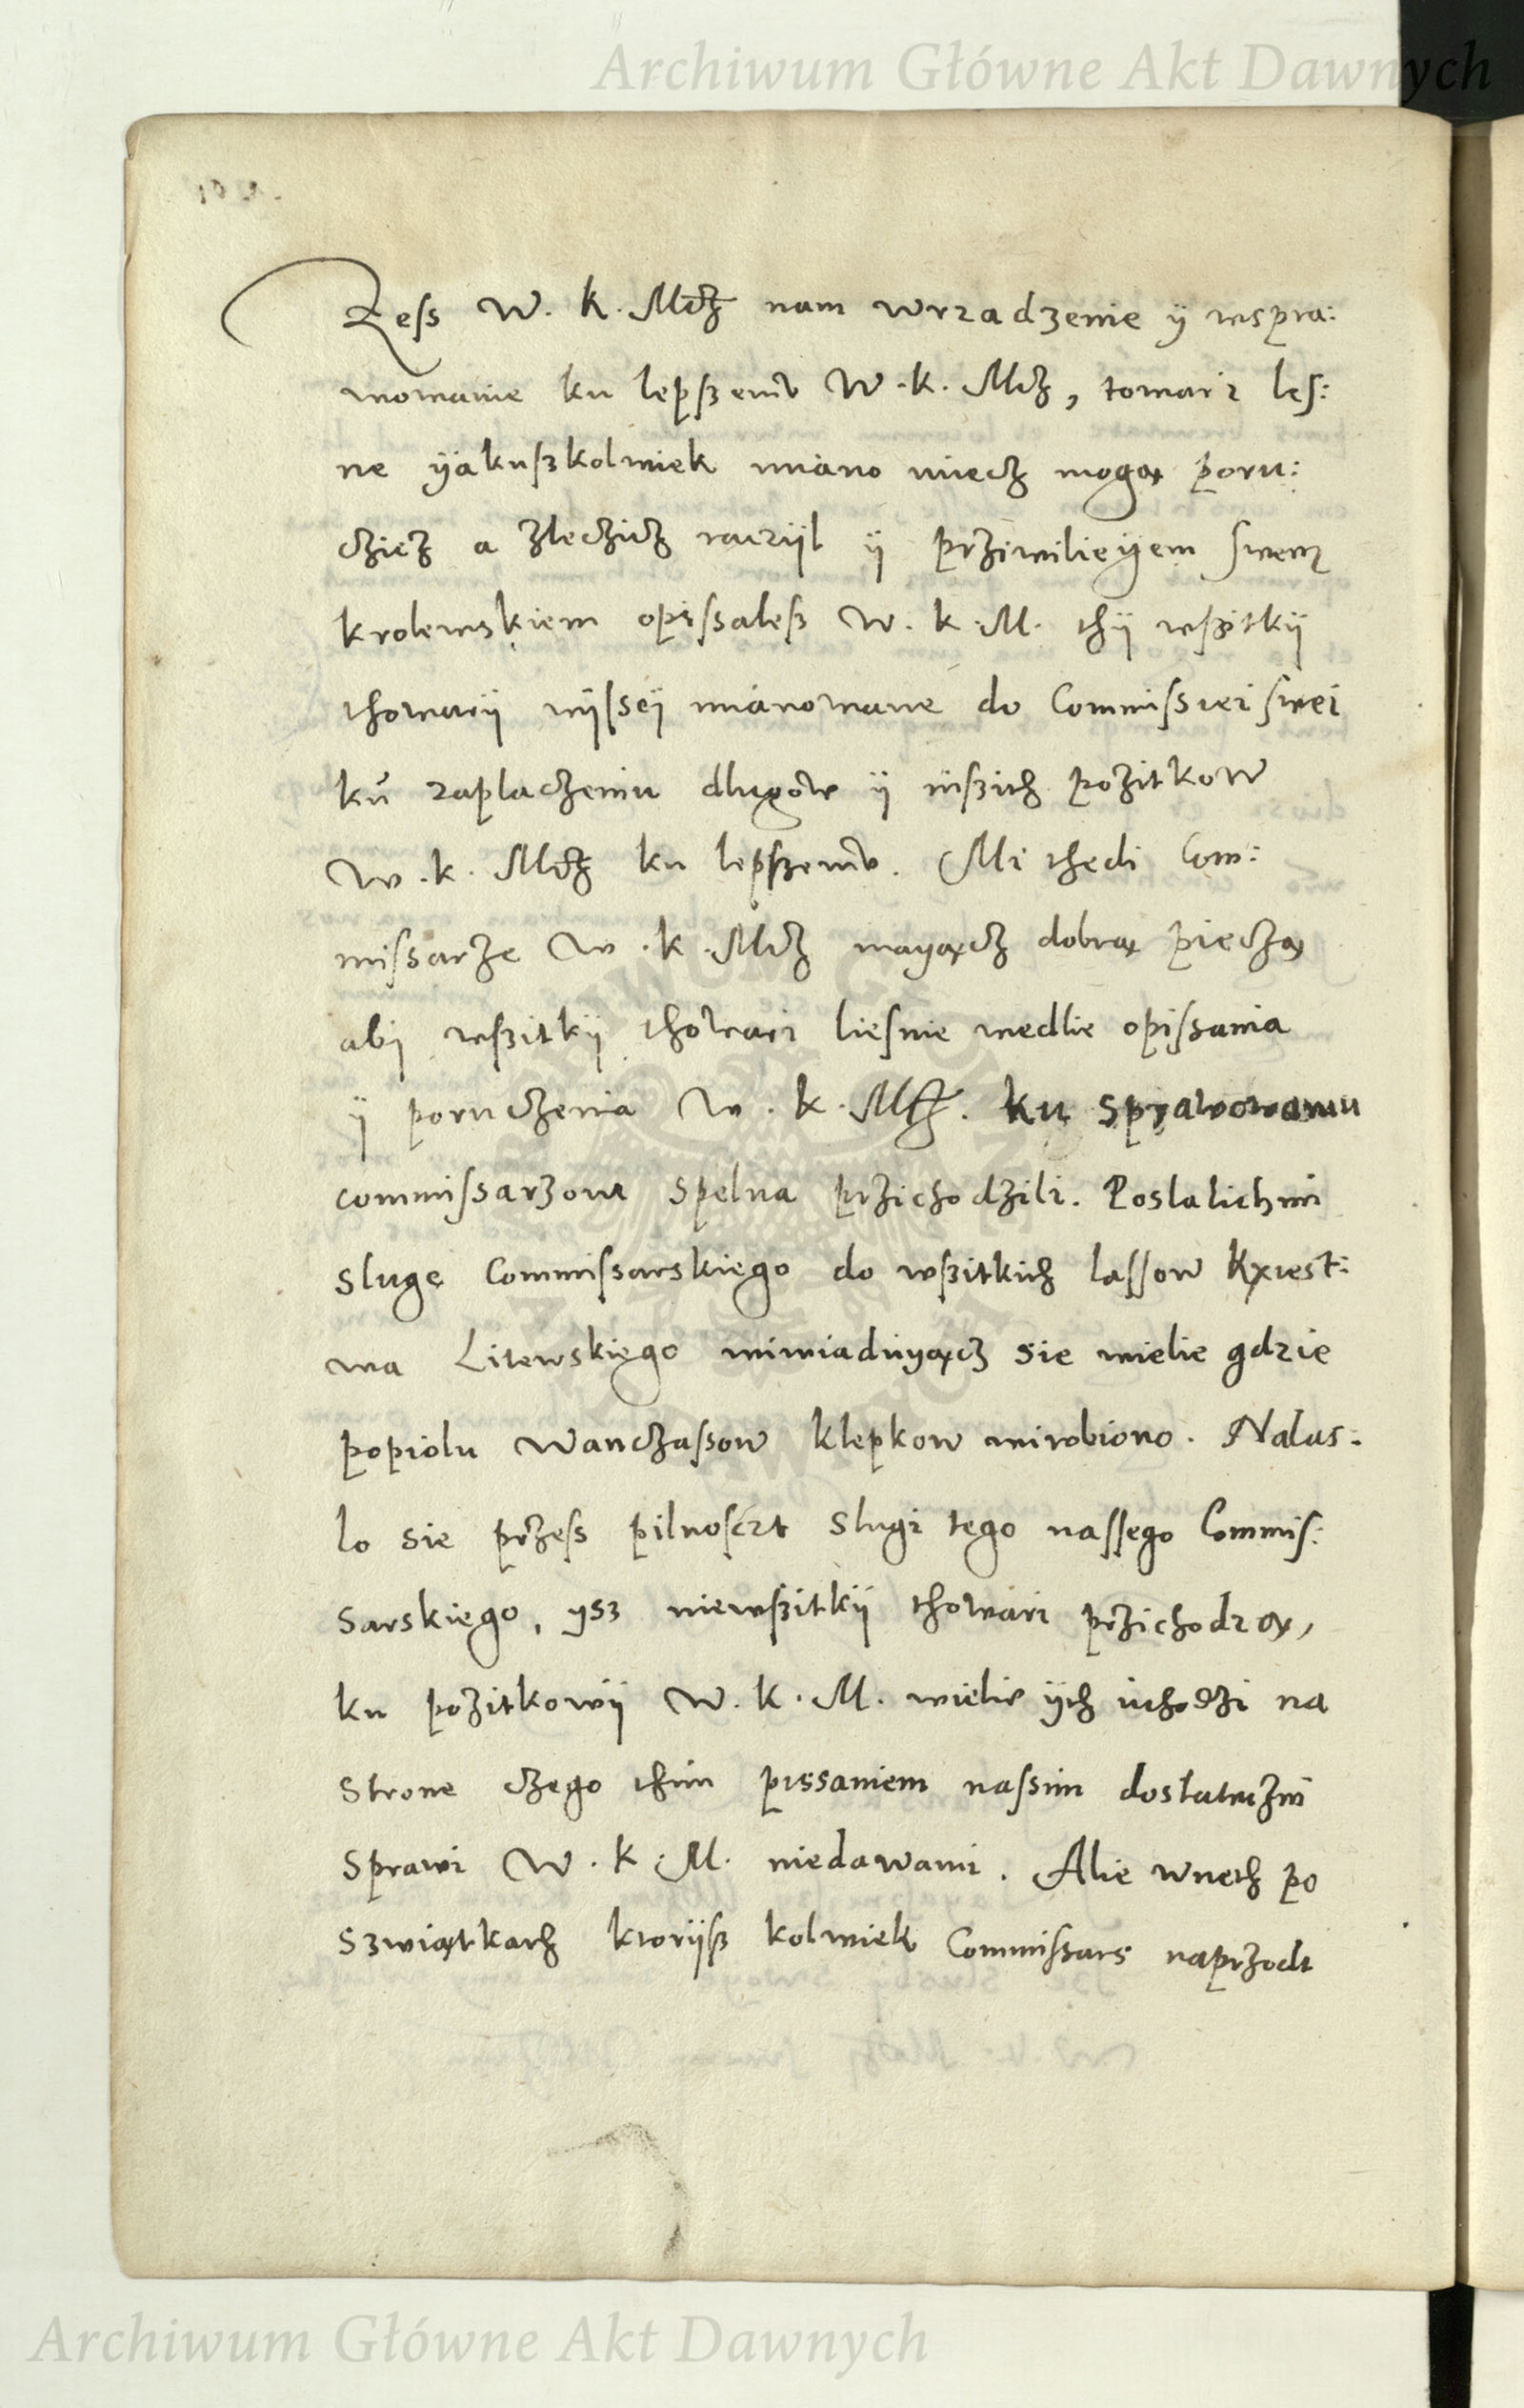 Archiwum Główne Akt Dawnych
Zess W. K. Mcz nam wrzadzenie ÿ wspra:
wowanie ku lepßemu W. k. Mcz, towari les:
ne ÿakußkolwiek miano miecz mogą poru:
czicz a zleczicz raczÿl ÿ przivilieÿem swem
krolewskiem opissaleß W. k. M. thÿ wßitkÿ
thowarÿ nÿsseÿ mianowane do Commissiei swei
ku zaplaczeniu dlugow ÿ inßich pozitkow
W. k. Mczi ku lepszemu. Mi thedi Com:
missarze W. k. Mcz mayącz dobrą pieczą
abi wßitkÿ thowari liesnie wedlie opissania
ÿ poruczenia W. k. Mczi. ku sprawowaniu
commissarzowi spelna przichodzili. Poslalichmi
sluge Commissarskiego do wßitkich lassow Kxiest:
wa Litewskiego wiwiaduyącz sie wielie gdzie
popiolu Wanczassow klepkow wirobiono. Nalas:
lo sie przess pilnosczi slugi tego nassego Commis:
sarskiego, ysz niewßitkÿ thowari przichodzą,
ku pozitkowÿ W. k. M. wielie ÿch uchodzi na
strone czego thim pissaniem nassim dostatecznei
sprawi W. k. M. niedawami. Alie wneth po
Szwiątkach ktorÿß kolwiek Commissars naprzodt
Archiwum Główne Akt Dawnych